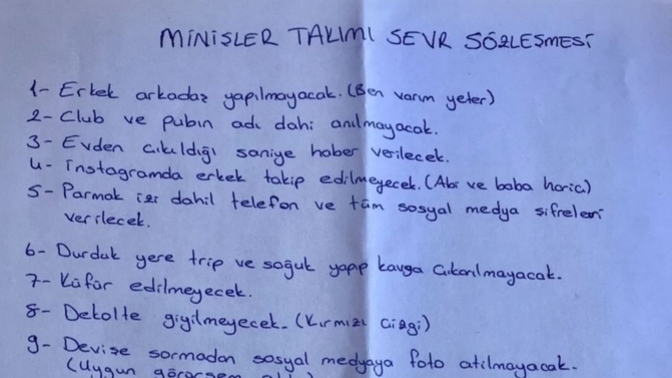 MİNİŞLER TAKIMI SEVR SÖZLEŞMESİ
1- Erkek arkadaş yapılmayacak. (Ben varım yeter)
2- Club ve pubın adı dahi anılmayacak.
3- Evden çıkıldığı saniye haber verilecek.
4- İnstagramda erkek takip edilmeyecek. (Abi ve baba harici)
5- Parmak izi dahil telefon ve tüm sosyal medya şifreleri
verilecek.
6- Durduk yere trip ve soğuk yapıp kavga çıkarılmayacak.
7- Küfür edilmeyecek.
8- Dekolte giyilmeyecek. (Kırmızı Çizgi)
9- Devise sormadan sosyal medyaya foto atılmayacak.
(Uygun görürsem